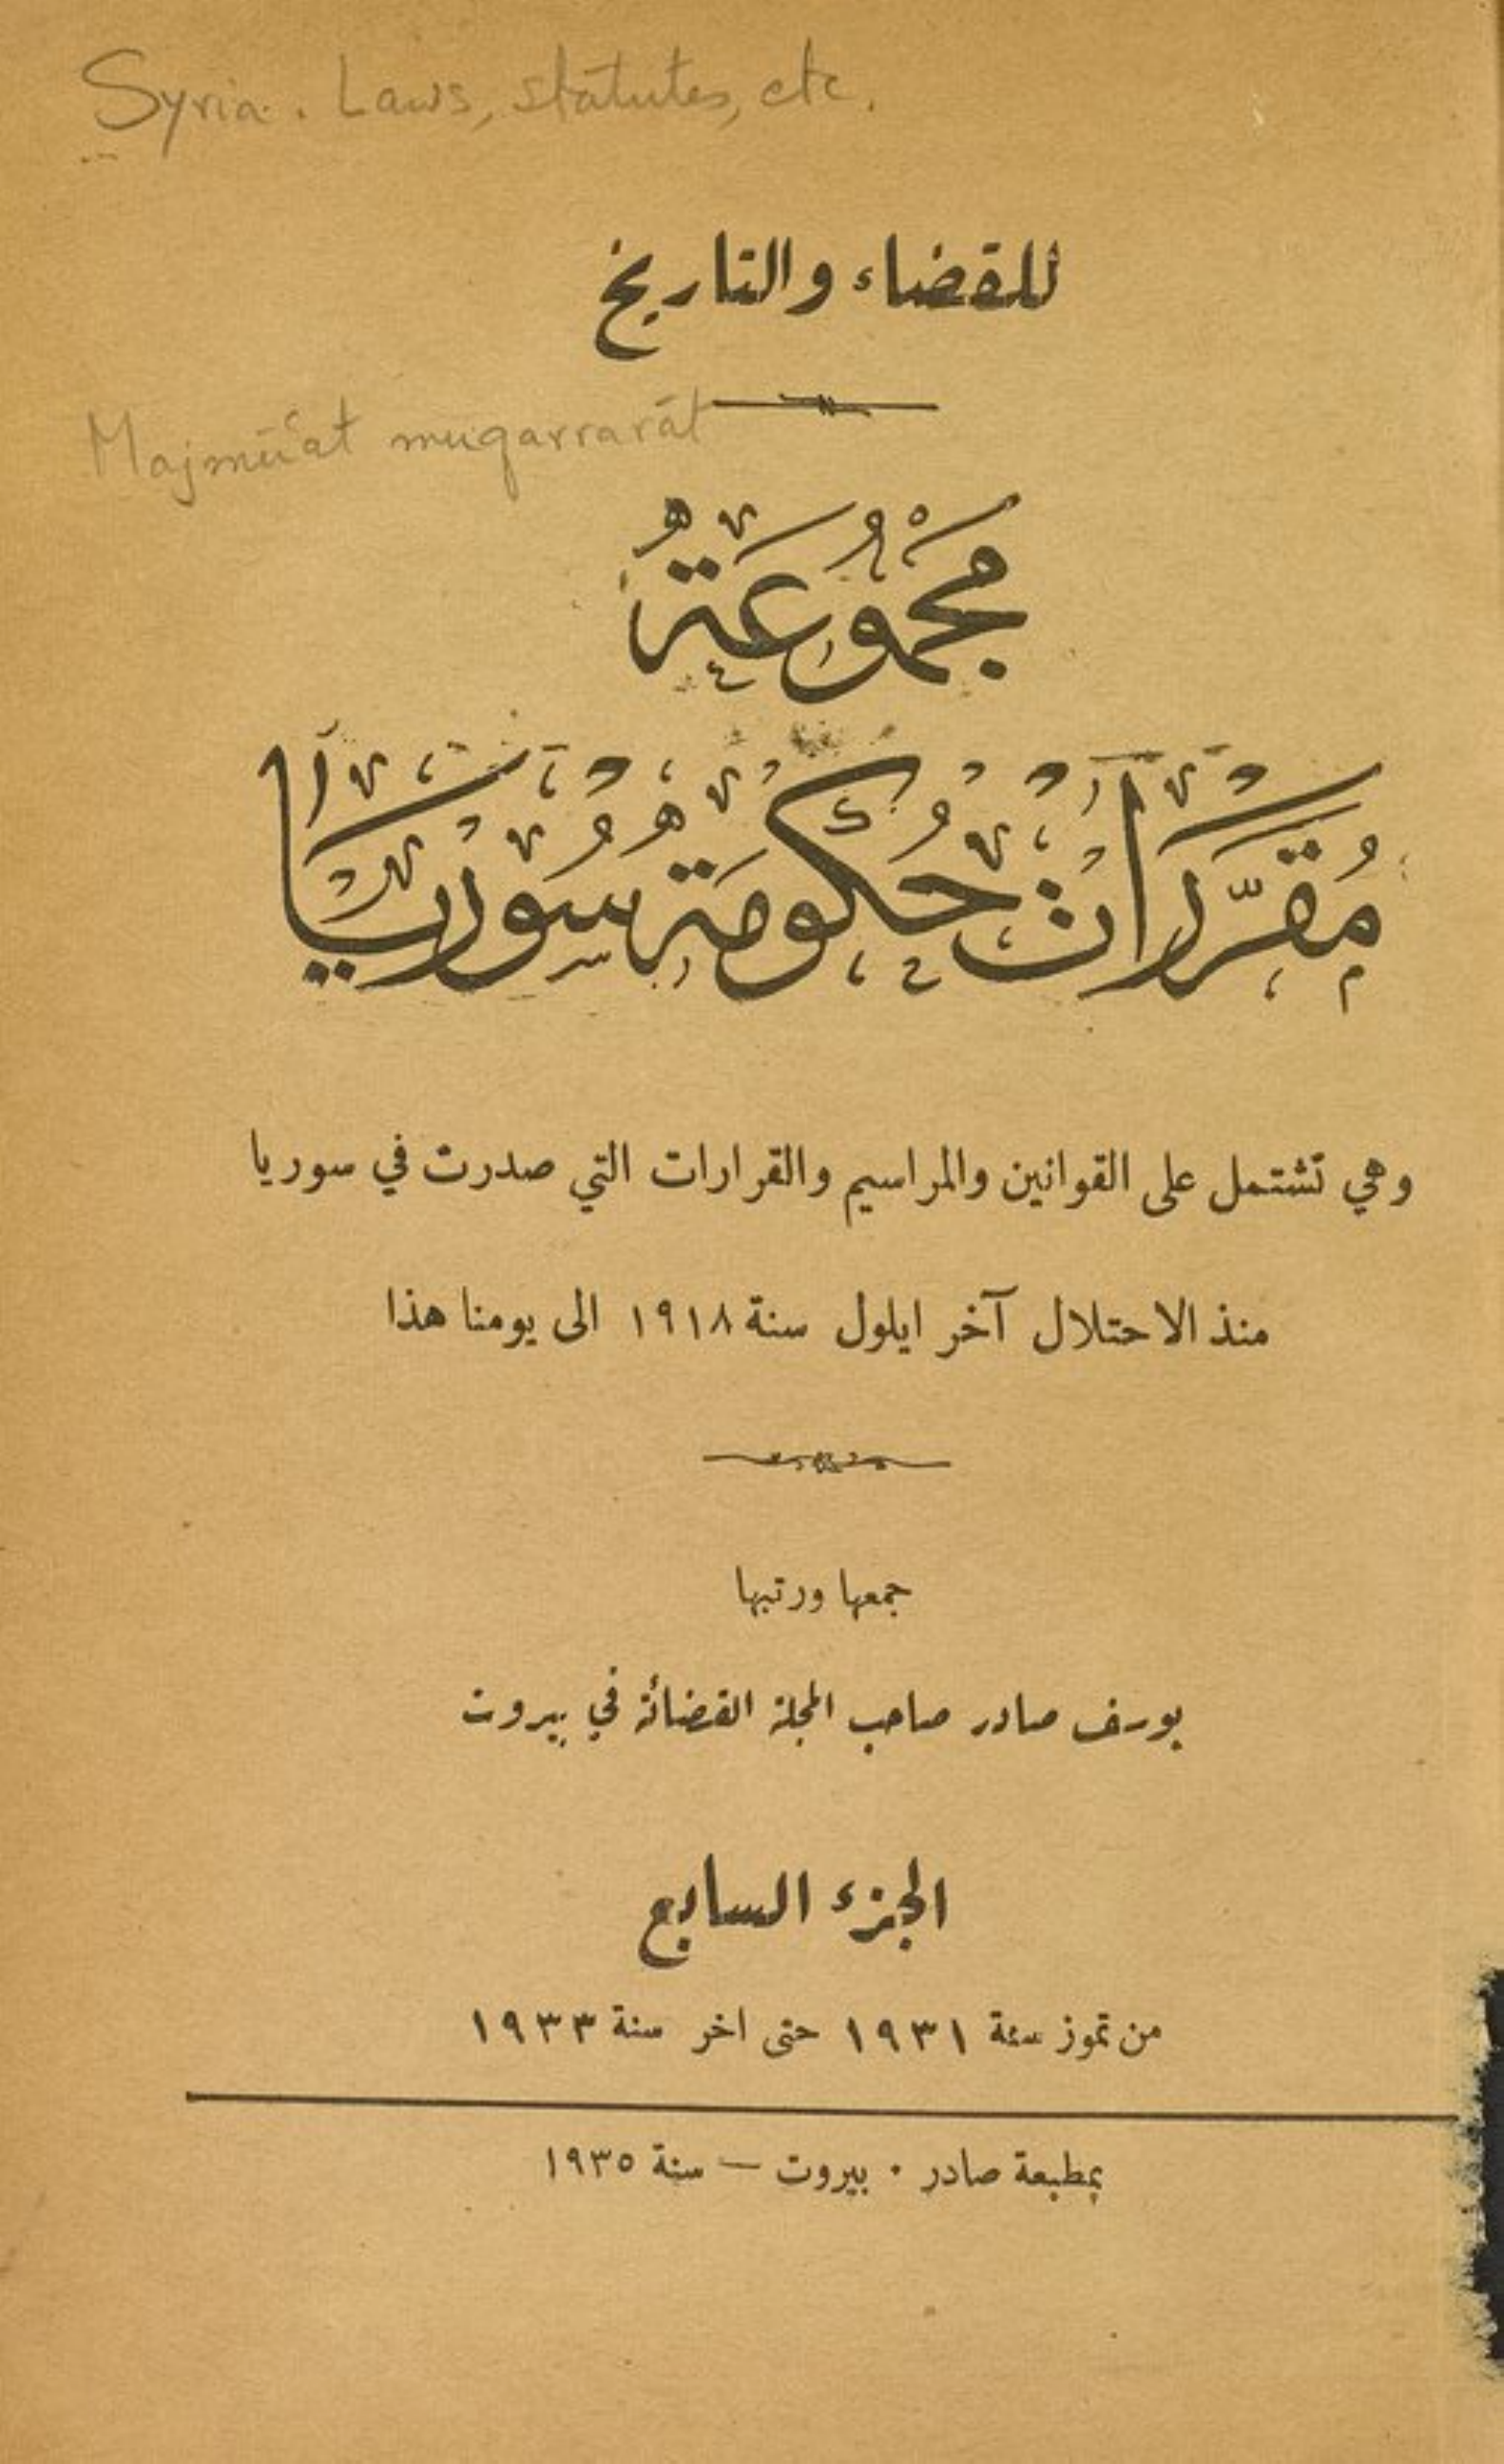 Syria. Laws, statutes, etc.
للقضاء والتاريخ
Majmū‘at muqarrarāt
مَجْمُوعَةُ
مُقرَّرات حُكومة سُوريا
وهي تشتمل على القوانين والمراسيم والقرارات التي صدرت في سوريا
منذ الاحتلال آخر ايلول سنة ١٩١٨ الى يومنا هذا
جمعها ورتبها
يوسف صادر صاحب المجلة القضائة في بيروت
الجزء السابع
من تموز سنة ١٩٣١ حتى اخر سنة ١٩٣٣
بمطبعة صادر . بيروت — سنة ١٩٣٥